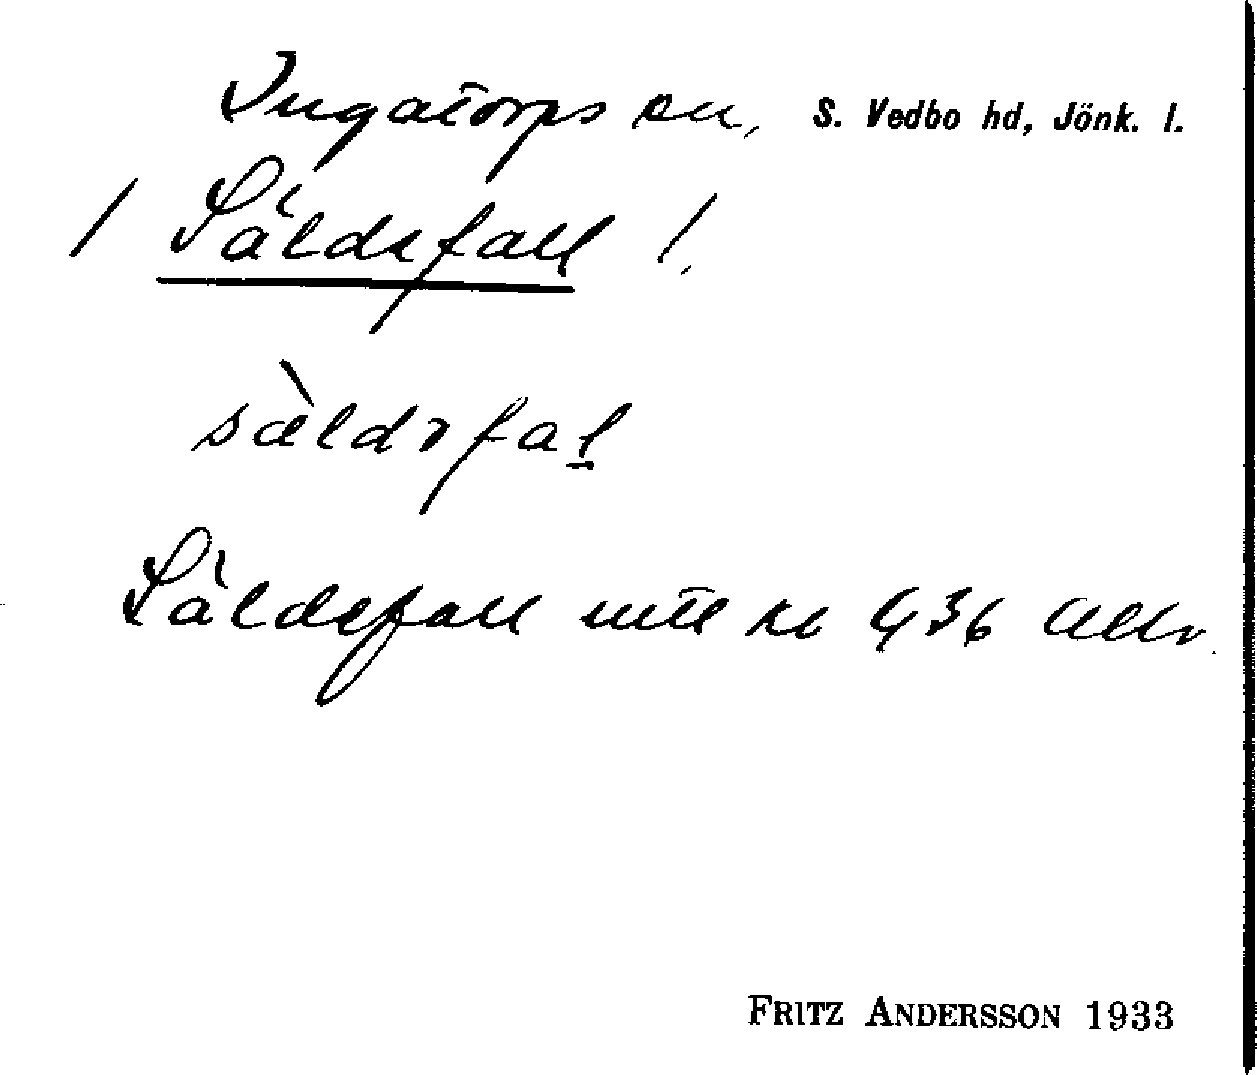 Ingatorps sn, S. Vedbo hd, Jönk. l.
/ Säldefall /.
säldəfal
Säldefall mtl kr G,36 Allm.
FRITZ ANDERSSON 1933